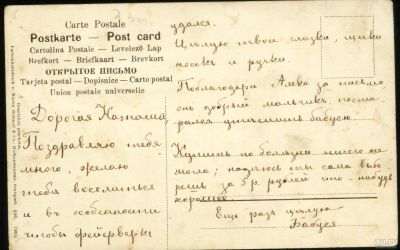 Carte Postale
Postkarte — Post card
Cartolina Postale — Levelező Lap
Brefkort — Briefkaart — Brevkort
ОТКРЫТОЕ ПИСЬМО
Tarjeta postal — Dopisnice — Carto postal
Union postale universelle
Дорогая Наташа,
Поздравляю тебя
много, желаю
тебѣ веселиться
и въ особенности
чтобы фейерверкъ
удался.
Цѣлую твои глазки, щечки
носокъ и ручки.
Поблагодари Алека за письмо
онъ добрый мальчикъ, поста-
рался утѣшить бабусю.
Купить по болѣзни ничего не
могла; надѣюсь ты сама выбе-
решь за 5 р. рублей что-нибудь
хорошее
Еще разъ цѣлую
Бабуся